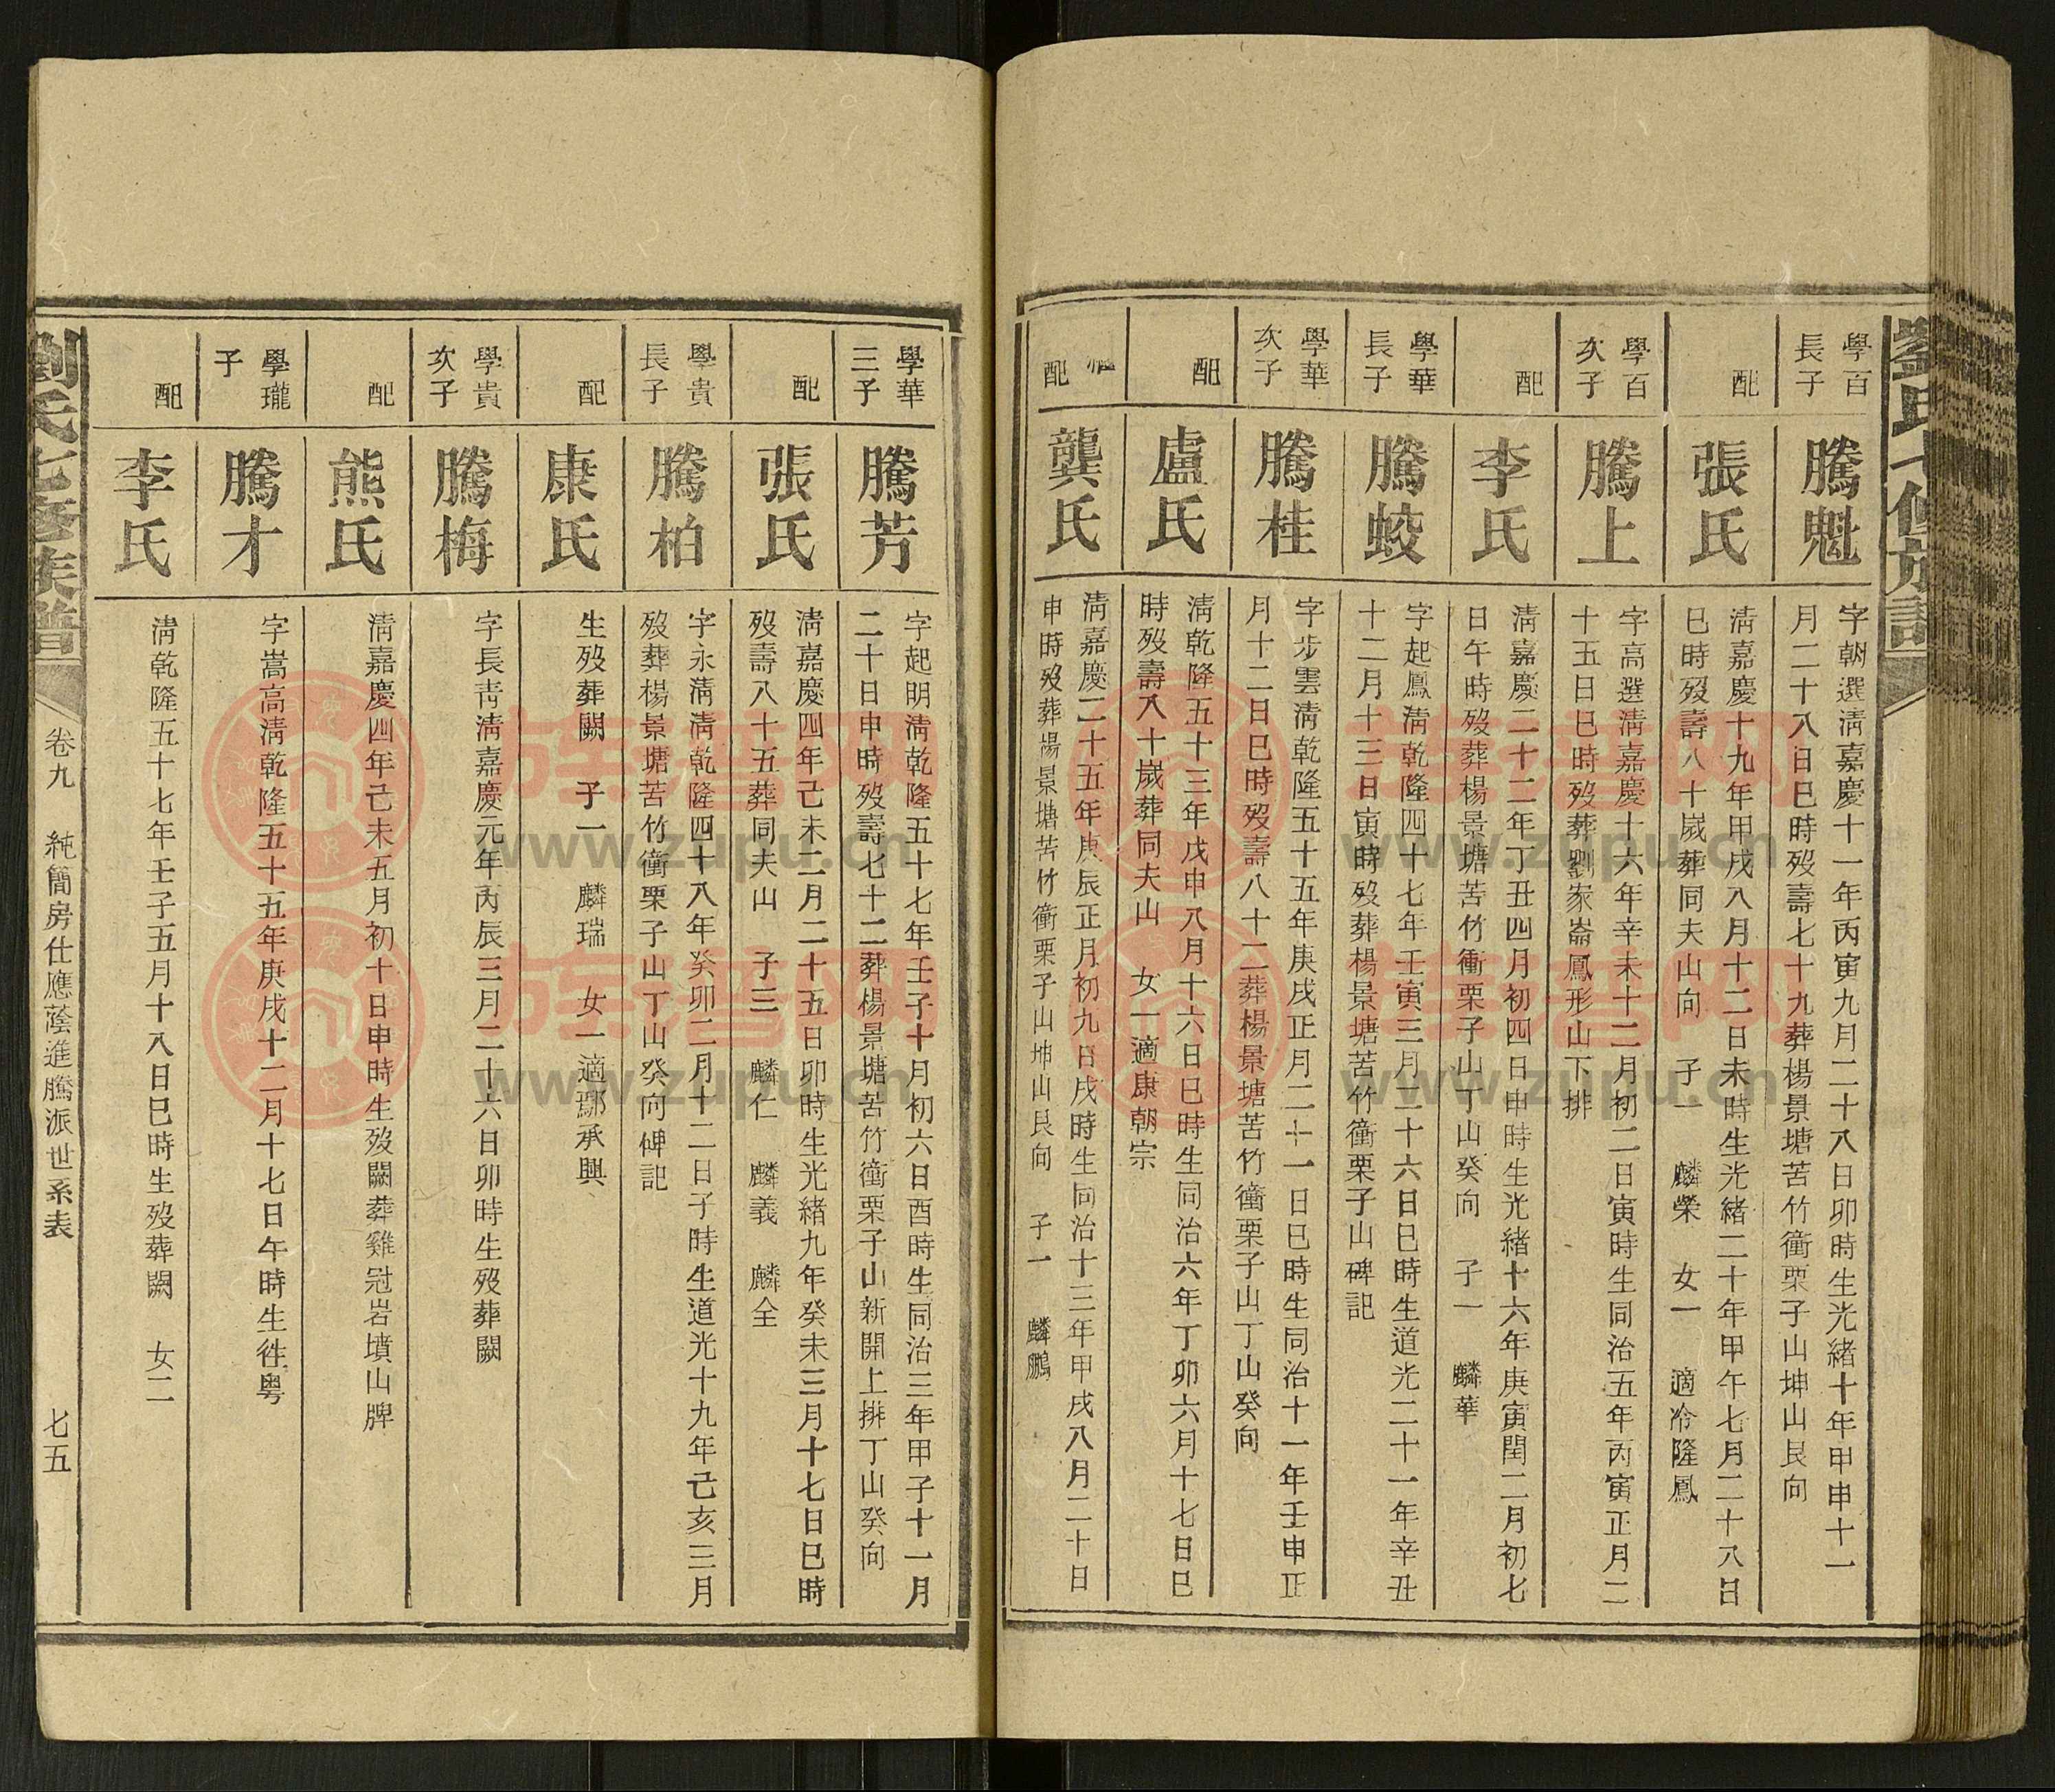 劉氏七修族譜
學百
長子
騰魁
字朝選淸嘉慶十一年丙寅九月二十八日卯時生光緒十年甲申十一
月二十八日巳時歿壽七十九葬楊景塘苦竹衝栗子山坤山艮向
配
張氏
淸嘉慶十九年甲戌八月十二日未時生光緒二十年甲午七月二十八日
巳時歿壽八十歲葬同夫山向 子一 麟榮 女一 適冷隆鳳
學百
次子
騰上
字高選淸嘉慶十六年辛未十二月初二日寅時生同治五年丙寅正月二
十五日巳時歿葬劉家崙鳳形山下排
配
李氏
淸嘉慶二十二年丁丑四月初四日申時生光緒十六年庚寅閏二月初七
日午時歿葬楊景塘苦竹衝栗子山丁山癸向 子一 麟華
學華
長子
騰蛟
字起鳳淸乾隆四十七年壬寅三月二十六日巳時生道光二十一年辛丑
十二月十三日寅時歿葬楊景塘苦竹衝栗子山碑記
學華
次子
騰桂
字步雲淸乾隆五十五年庚戌正月二十一日巳時生同治十一年壬申正
月十二日巳時歿壽八十二葬楊景塘苦竹衝栗子山丁山癸向
配
盧氏
淸乾隆五十三年戊申八月十六日巳時生同治六年丁卯六月十七日巳
時歿壽八十歲葬同夫山 女一適康朝宗
配
龔氏
淸嘉慶二十五年庚辰正月初九日戌時生同治十三年甲戌八月二十日
申時歿葬楊景塘苦竹衝栗子山坤山艮向 子一 麟鵬
學華
三子
騰芳
字起明淸乾隆五十七年壬子十月初六日酉時生同治三年甲子十一月
二十日申時歿壽七十二葬楊景塘苦竹衝栗子山新開上排丁山癸向
配
張氏
淸嘉慶四年己未二月二十五日卯時生光緒九年癸未三月十七日巳時
歿壽八十五葬同夫山 子三 麟仁 麟義 麟全
學貴
長子
騰柏
字永淸淸乾隆四十八年癸卯二月十二日子時生道光十九年己亥三月
歿葬楊景塘苦竹衝栗子山丁山癸向碑記
配
康氏
生歿葬闕 子一 麟瑞 女一適鄢承興
學貴
次子
騰梅
字長靑淸嘉慶元年丙辰三月二十六日卯時生歿葬闕
配
熊氏
淸嘉慶四年己未五月初十日申時生歿闕葬雞冠岩墳山牌
學瓏
子
騰才
字嵩高淸乾隆五十五年庚戌十二月十七日午時生徃粵
配
李氏
淸乾隆五十七年壬子五月十八日巳時生歿葬闕 女二
劉氏七修族譜
卷九 純簡房仕應蔭進騰派世系表 七五
族譜网
www.zupu.cn
族譜网
www.zupu.cn
族譜网
www.zupu.cn
族譜网
www.zupu.cn